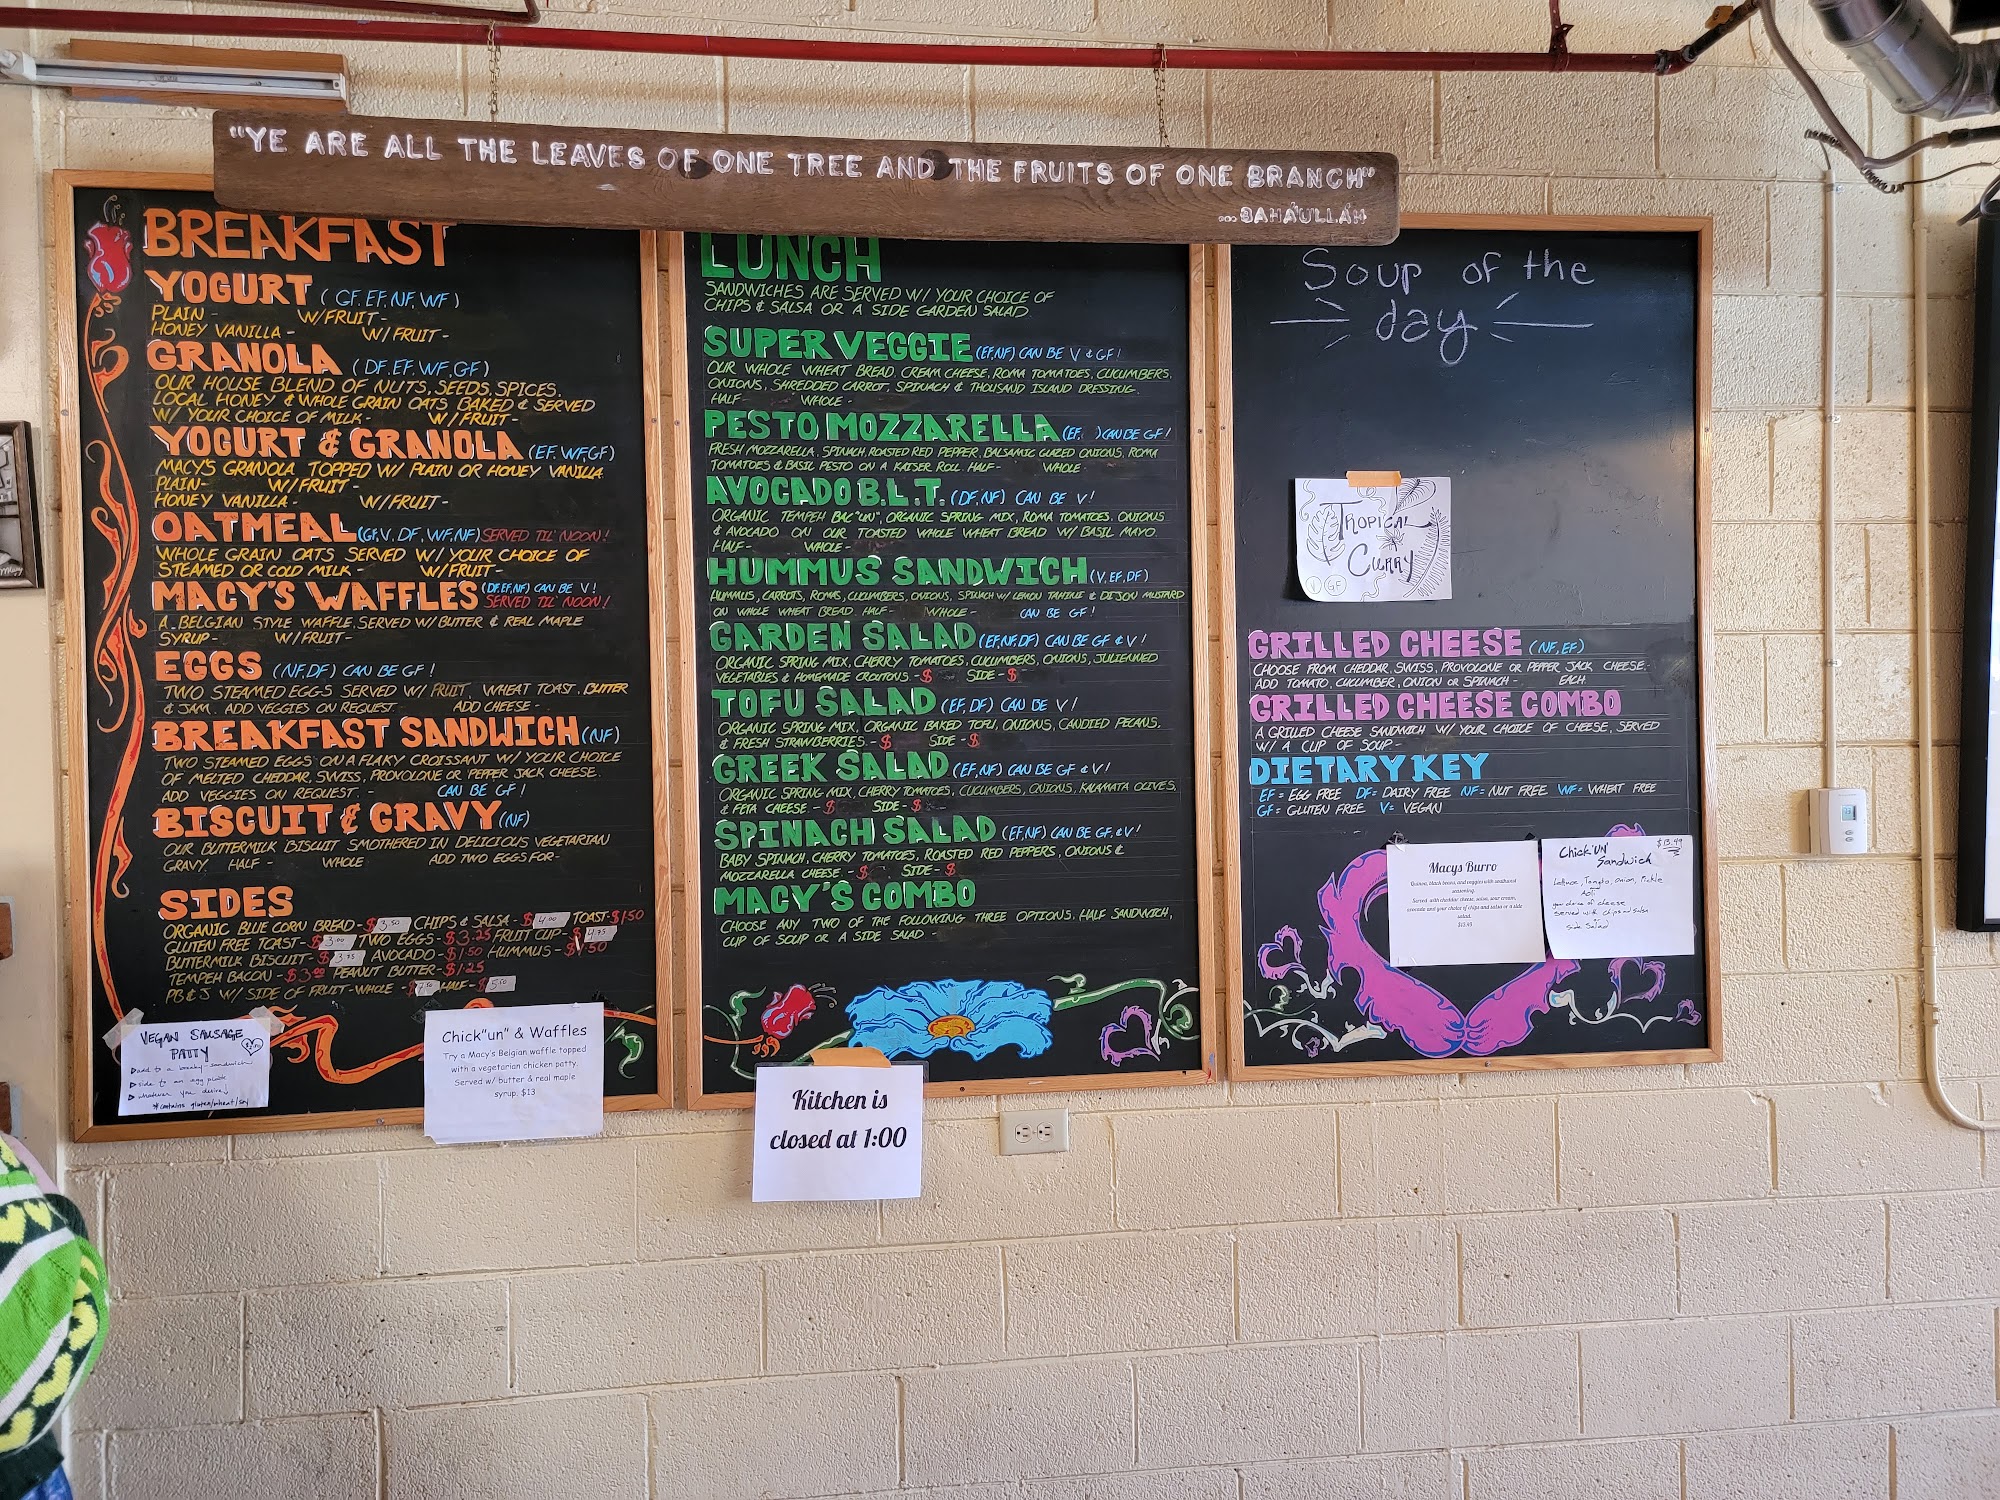 "YE ARE ALL THE LEAVES OF ONE TREE AND THE FRUITS OF ONE BRANCH"
...BAHA'ULLAH
BREAKFAST
YOGURT (GF, EF, NF, WF)
PLAIN - W/FRUIT -
HONEY VANILLA - W/FRUIT -
GRANOLA (DF, EF, WF, GF)
OUR HOUSE BLEND OF NUTS, SEEDS, SPICES,
LOCAL HONEY & WHOLE GRAIN OATS BAKED & SERVED
W/ YOUR CHOICE OF MILK - W/FRUIT -
YOGURT & GRANOLA (EF, WF, GF)
MACY'S GRANOLA TOPPED W/ PLAIN OR HONEY VANILLA
PLAIN - W/FRUIT -
HONEY VANILLA - W/FRUIT -
OATMEAL (GF, V, DF, WF, NF) SERVED TIL' NOON!
WHOLE GRAIN OATS SERVED W/ YOUR CHOICE OF
STEAMED OR COLD MILK - W/FRUIT -
MACY'S WAFFLES (DF, EF, NF) CAN BE V!
SERVED TIL' NOON!
A BELGIAN STYLE WAFFLE SERVED W/ BUTTER & REAL MAPLE
SYRUP - W/FRUIT -
EGGS (NF, DF) CAN BE GF!
TWO STEAMED EGGS SERVED W/ FRUIT, WHEAT TOAST, BUTTER
& JAM. ADD VEGGIES ON REQUEST. ADD CHEESE -
BREAKFAST SANDWICH (NF)
TWO STEAMED EGGS ON A FLAKY CROISSANT W/ YOUR CHOICE
OF MELTED CHEDDAR, SWISS, PROVOLONE OR PEPPER JACK CHEESE.
ADD VEGGIES ON REQUEST. - CAN BE GF!
BISCUIT & GRAVY (NF)
OUR BUTTERMILK BISCUIT SMOTHERED IN DELICIOUS VEGETARIAN
GRAVY. HALF - WHOLE ADD TWO EGGS FOR -
SIDES
ORGANIC BLUE CORN BREAD - $3.50 CHIPS & SALSA - $4.00 TOAST - $1.50
GLUTEN FREE TOAST - $3.00 TWO EGGS - $3.25 FRUIT CUP - $4.75
BUTTERMILK BISCUIT - $3.75 AVOCADO - $1.50 HUMMUS - $1.50
TEMPEH BACON - $3.00 PEANUT BUTTER - $1.25
PB & J W/ SIDE OF FRUIT - WHOLE - $7.50 HALF - $5.50
VEGAN SAUSAGE
PATTY $2.50
add to a breaky-sandwich
side to an egg plate
whatever you desire!
*contains gluten/wheat/soy
Chick"un" & Waffles
Try a Macy's Belgian waffle topped
with a vegetarian chicken patty.
Served w/ butter & real maple
syrup. $13
LUNCH
SANDWICHES ARE SERVED W/ YOUR CHOICE OF
CHIPS & SALSA OR A SIDE GARDEN SALAD
SUPER VEGGIE (EF, NF) CAN BE V & GF!
OUR WHOLE WHEAT BREAD, CREAM CHEESE, ROMA TOMATOES, CUCUMBERS,
ONIONS, SHREDDED CARROT, SPINACH & THOUSAND ISLAND DRESSING.
HALF - WHOLE -
PESTO MOZZARELLA (EF, ) CAN BE GF!
FRESH MOZZARELLA, SPINACH, ROASTED RED PEPPER, BALSAMIC GLAZED ONIONS, ROMA
TOMATOES & BASIL PESTO ON A KAISER ROLL. HALF - WHOLE
AVOCADO B.L.T. (DF, NF) CAN BE V!
ORGANIC TEMPEH BAC"UN", ORGANIC SPRING MIX, ROMA TOMATOES, ONIONS
& AVOCADO ON OUR TOASTED WHOLE WHEAT BREAD W/ BASIL MAYO
HALF - WHOLE -
HUMMUS SANDWICH (V, EF, DF)
HUMMUS, CARROTS, ROMAS, CUCUMBERS, ONIONS, SPINACH W/ LEMON TAHINE & DIJON MUSTARD
ON WHOLE WHEAT BREAD. HALF - WHOLE - CAN BE GF!
GARDEN SALAD (EF, NF, DF) CAN BE GF & V!
ORGANIC SPRING MIX, CHERRY TOMATOES, CUCUMBERS, ONIONS, JULIENNED
VEGETABLES & HOMEMADE CROUTONS. - $ SIDE - $
TOFU SALAD (EF, DF) CAN BE V!
ORGANIC SPRING MIX, ORGANIC BAKED TOFU, ONIONS, CANDIED PECANS,
& FRESH STRAWBERRIES. - $ SIDE - $
GREEK SALAD (EF, NF) CAN BE GF & V!
ORGANIC SPRING MIX, CHERRY TOMATOES, CUCUMBERS, ONIONS, KALAMATA OLIVES,
& FETA CHEESE - $ SIDE - $
SPINACH SALAD (EF, NF) CAN BE GF, & V!
BABY SPINACH, CHERRY TOMATOES, ROASTED RED PEPPERS, ONIONS &
MOZZARELLA CHEESE. - $ SIDE - $
MACY'S COMBO
CHOOSE ANY TWO OF THE FOLLOWING THREE OPTIONS, HALF SANDWICH,
CUP OF SOUP OR A SIDE SALAD -
Kitchen is
closed at 1:00
Soup of the
day
TROPICAL
CURRY
V GF
GRILLED CHEESE (NF, EF)
CHOOSE FROM CHEDDAR, SWISS, PROVOLONE OR PEPPER JACK CHEESE. -
ADD TOMATO, CUCUMBER, ONION OR SPINACH - EACH
GRILLED CHEESE COMBO
A GRILLED CHEESE SANDWICH W/ YOUR CHOICE OF CHEESE, SERVED
W/ A CUP OF SOUP -
DIETARY KEY
EF = EGG FREE DF = DAIRY FREE NF = NUT FREE WF = WHEAT FREE
GF = GLUTEN FREE V = VEGAN
Macys Burro
Quinoa, black beans, and veggies with southwest
seasoning.
Served with cheddar cheese, salsa, sour cream,
avocado and your choice of chips and salsa or a side
salad.
$13.49
Chick'UN' $13.49
Sandwich
Lettuce, Tomato, onion, Pickle
Aoli
your choice of cheese
served with chips and salsa
or
side Salad